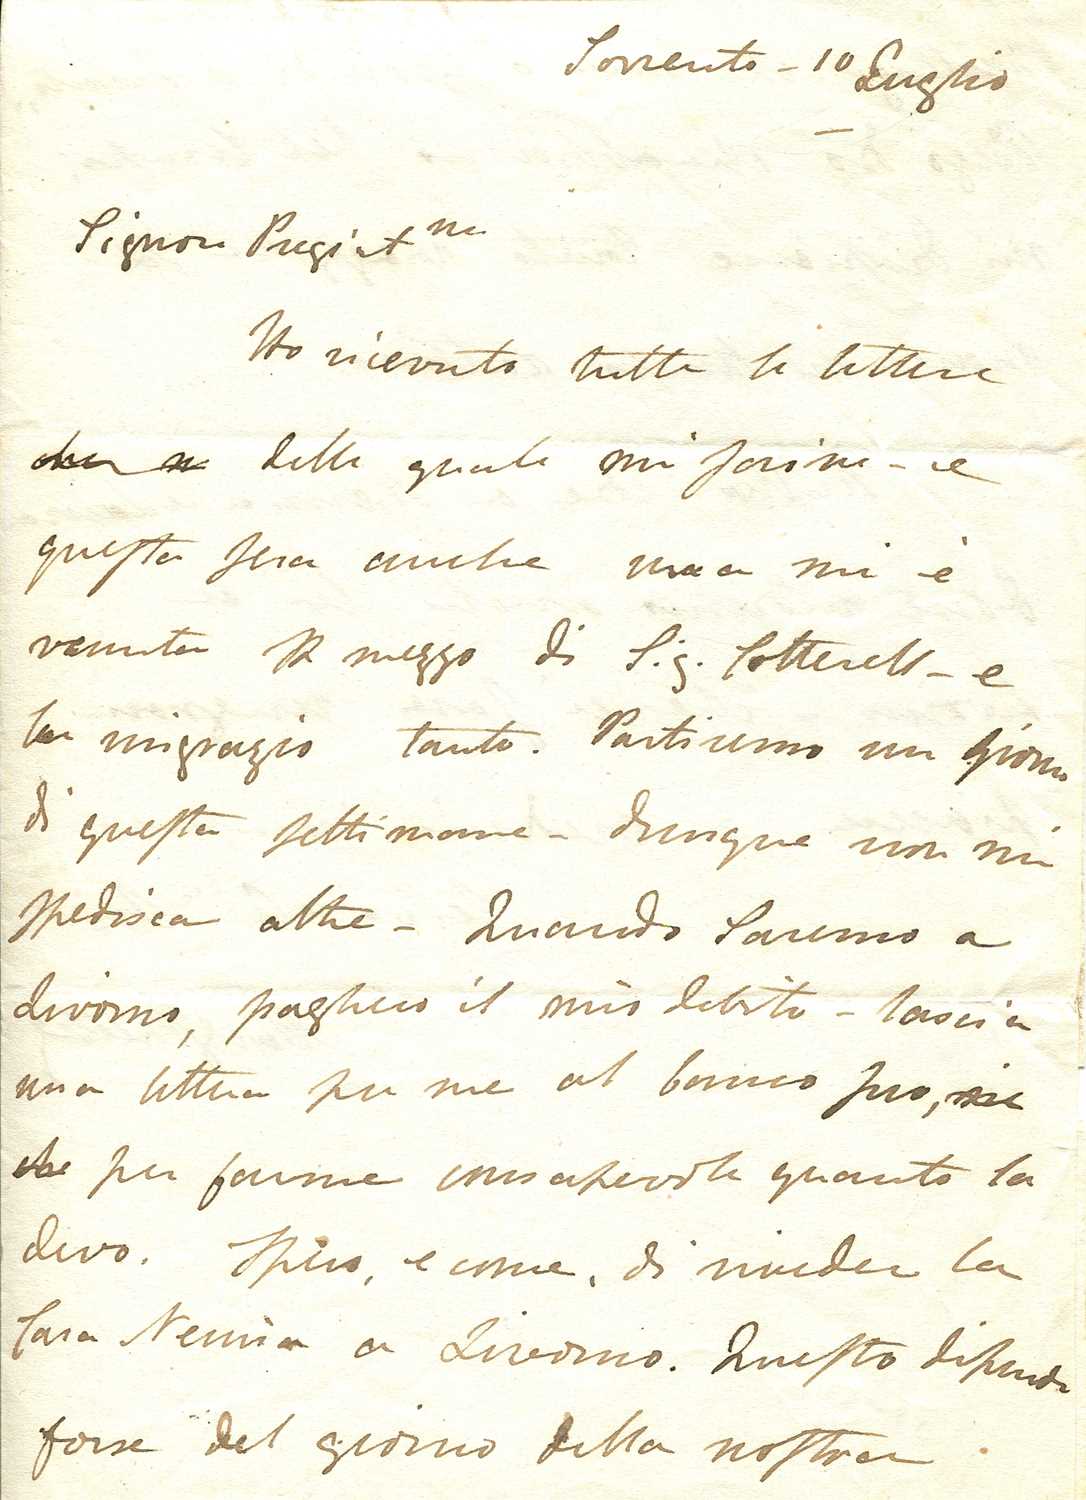 Sorrento - 10 Luglio
Signore Pregiat mo
Ho ricevuto tutte le lettere
delle quale mi scrive - e
questa sera anche una mi è
venuta mezzo di Sig. Cotterell - e
la ringrazio tanto. Partiremo un giorno
di questa settimane - dunque non mi
spedisca altre - Quando saremo a
Livorno, pagherò il mio debito - lascia
una lettera per me al banco suo,
che per farme consapevole quanto la
devo. Spero, e come, di riveder la
Cara Nemia a Livorno. Questo dipende
forse del giorno della nostra